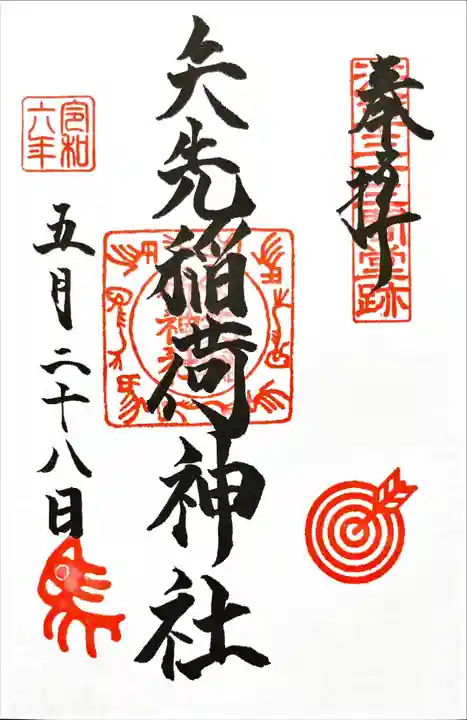 奉拝
浅草三十三間堂跡
矢先稲荷神社
令和
六年
五月二十八日
馬